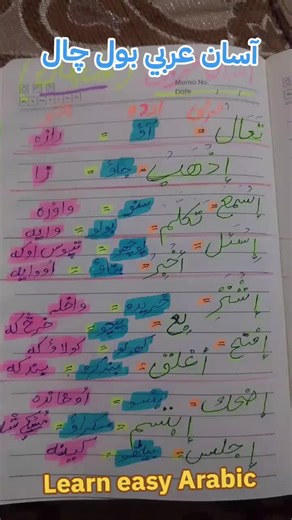 آسان عربي بول چال
Memo No
Date
تَعَال = آؤ = راژه
إِذْهَبْ = جاؤ = زا
إِسْمَعْ = سنو = واوره
تَكَلَّم = بولو = وایه
إِسْئَل = پوچھو = تپوس اوکه
أَخْبِرْ = بتاؤ = اووایه
إِشْتَرِ = خریدو = واخله
بِع = بیچو = خرڅ که
إِفتَح = کھولو = کولاؤ که
أَغْلق = بند کرو = بند که
إِضحك = ہنسو = اوخانده
إِبتسم = مسکراؤ =
إِجلس = بیٹھو = کینه
Learn easy Arabic